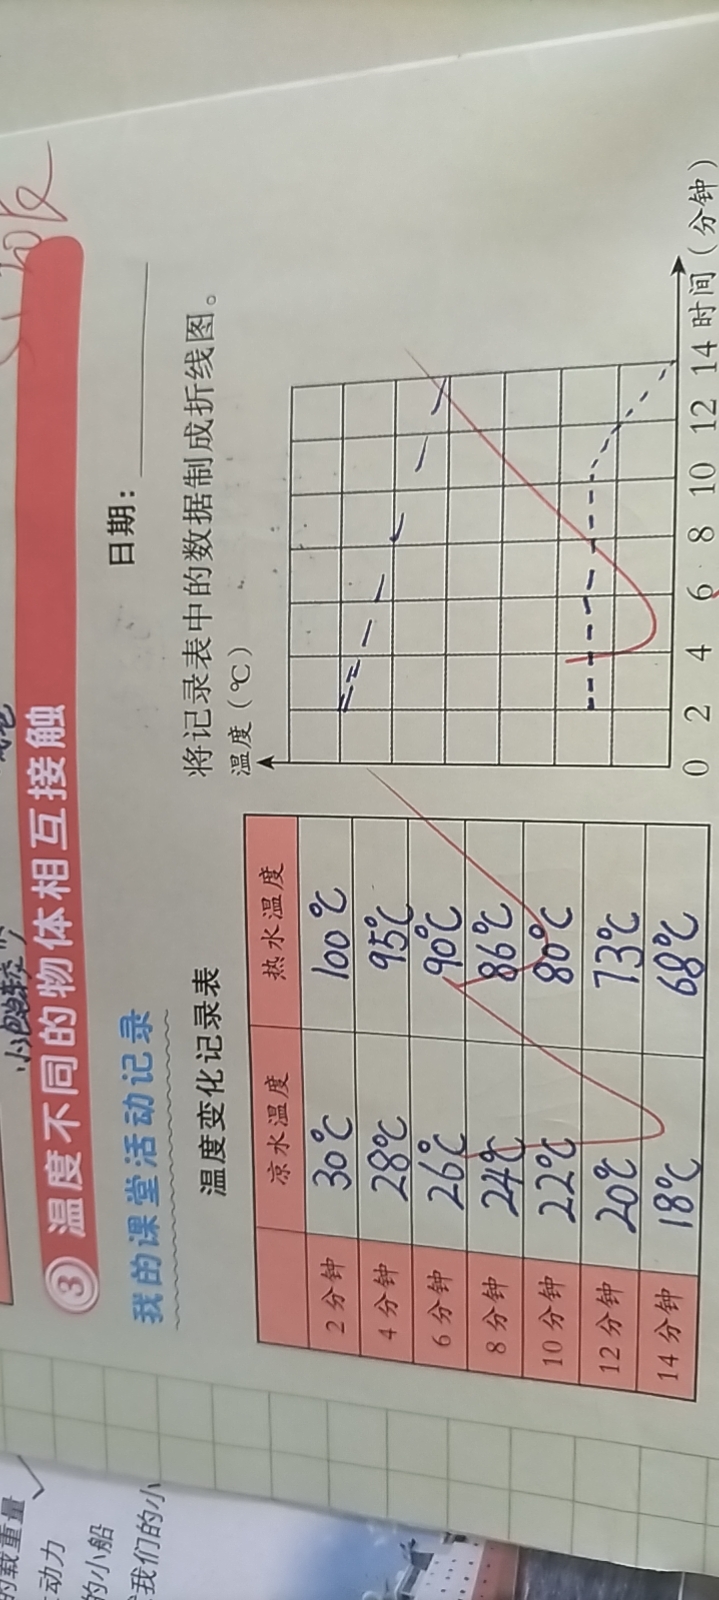 ③ 温度不同的物体相互接触
我的课堂活动记录
日期：
温度变化记录表
凉水温度 热水温度
2分钟 30℃ 100℃
4分钟 28℃ 95℃
6分钟 26℃ 90℃
8分钟 24℃ 86℃
10分钟 22℃ 80℃
12分钟 20℃ 73℃
14分钟 18℃ 68℃
将记录表中的数据制成折线图。
温度（℃）
0 2 4 6 8 10 12 14 时间（分钟）
的载重量
动力
的小船
我们的小